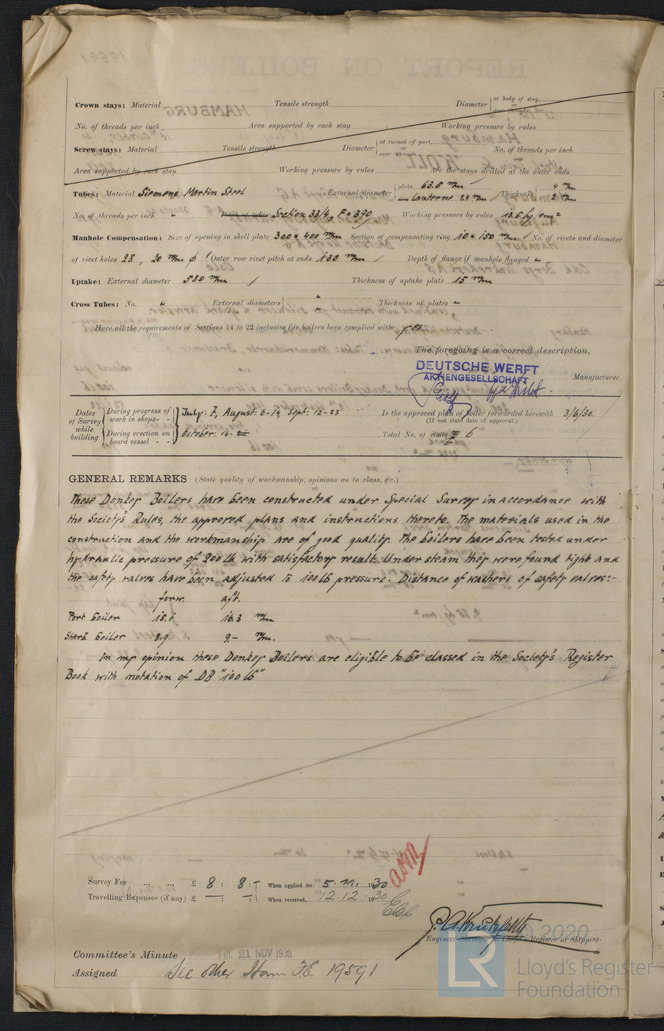 Crown stays: Material Tensile strength Diameter { at body of stay, or over threads
No. of threads per inch Area supported by each stay Working pressure by rules
Screw stays: Material Tensile strength Diameter { at turned off part, or over threads No. of threads per inch
Area supported by each stay Working pressure by rules Are the stays drilled at the outer ends
Tubes: Material Siemens Martin Steel External diameter { plain 63.5 m/m Thickness { 4 m/m
Lanterns 24 m/m 2 m/m
No. of threads per inch " Section 33/4, F= 390 Working pressure by rules
Manhole Compensation: Size of opening in shell plate 300 x 400 m/m Section of compensating ring 10 x 150 m/m No. of rivets and diameter
of rivet holes 28, 20 m/m φ Outer row rivet pitch at ends 130 m/m Depth of flange if manhole flanged "
Uptake: External diameter 530 m/m Thickness of uptake plate 15 m/m
Cross Tubes: No. " External diameters { " Thickness of plates "
Have all the requirements of Sections 14 to 22 inclusive for boilers been complied with yes
The foregoing is a correct description,
DEUTSCHE WERFT
AKTIENGESELLSCHAFT
Manufacturer.
Dates of Survey while building { During progress of work in shops - - } July: 7, August: 6-14, Sept: 12-23 Is the approved plan of boiler forwarded herewith 3/6/30.
(If not state date of approval.)
During erection on board vessel - - } October: 16- Total No. of visits 6
GENERAL REMARKS (State quality of workmanship, opinions as to class, &c.)
These Donkey Boilers have been constructed under Special Survey in accordance with
the Society's Rules, the approved plans and instructions thereto. The materials used in the
construction and the workmanship are of good quality. The boilers have been tested under
hydraulic pressure of 200 lb with satisfactory result. Under steam they were found tight and
the safety valves have been adjusted to 100 lb pressure. Distance of washers of safety valves:-
forw. aft.
Port boiler 10.3 m/m
Starb boiler 8.9 9.- m/m.
In my opinion these Donkey Boilers are eligible to be classed in the Society's Register
Book with notation of DB "100 lb"
Survey Fee ... ... £ 8 : 8 : - When applied for, 5.11.1930
Travelling Expenses (if any) £ - : - When received, 12.12.1930
Engineer Surveyor to Lloyd's Register of Shipping.
Committee's Minute FRI. 21 NOV 1930
Assigned See other Ham F.E. 19591
© 2020
LR
Lloyd's Register
Foundation